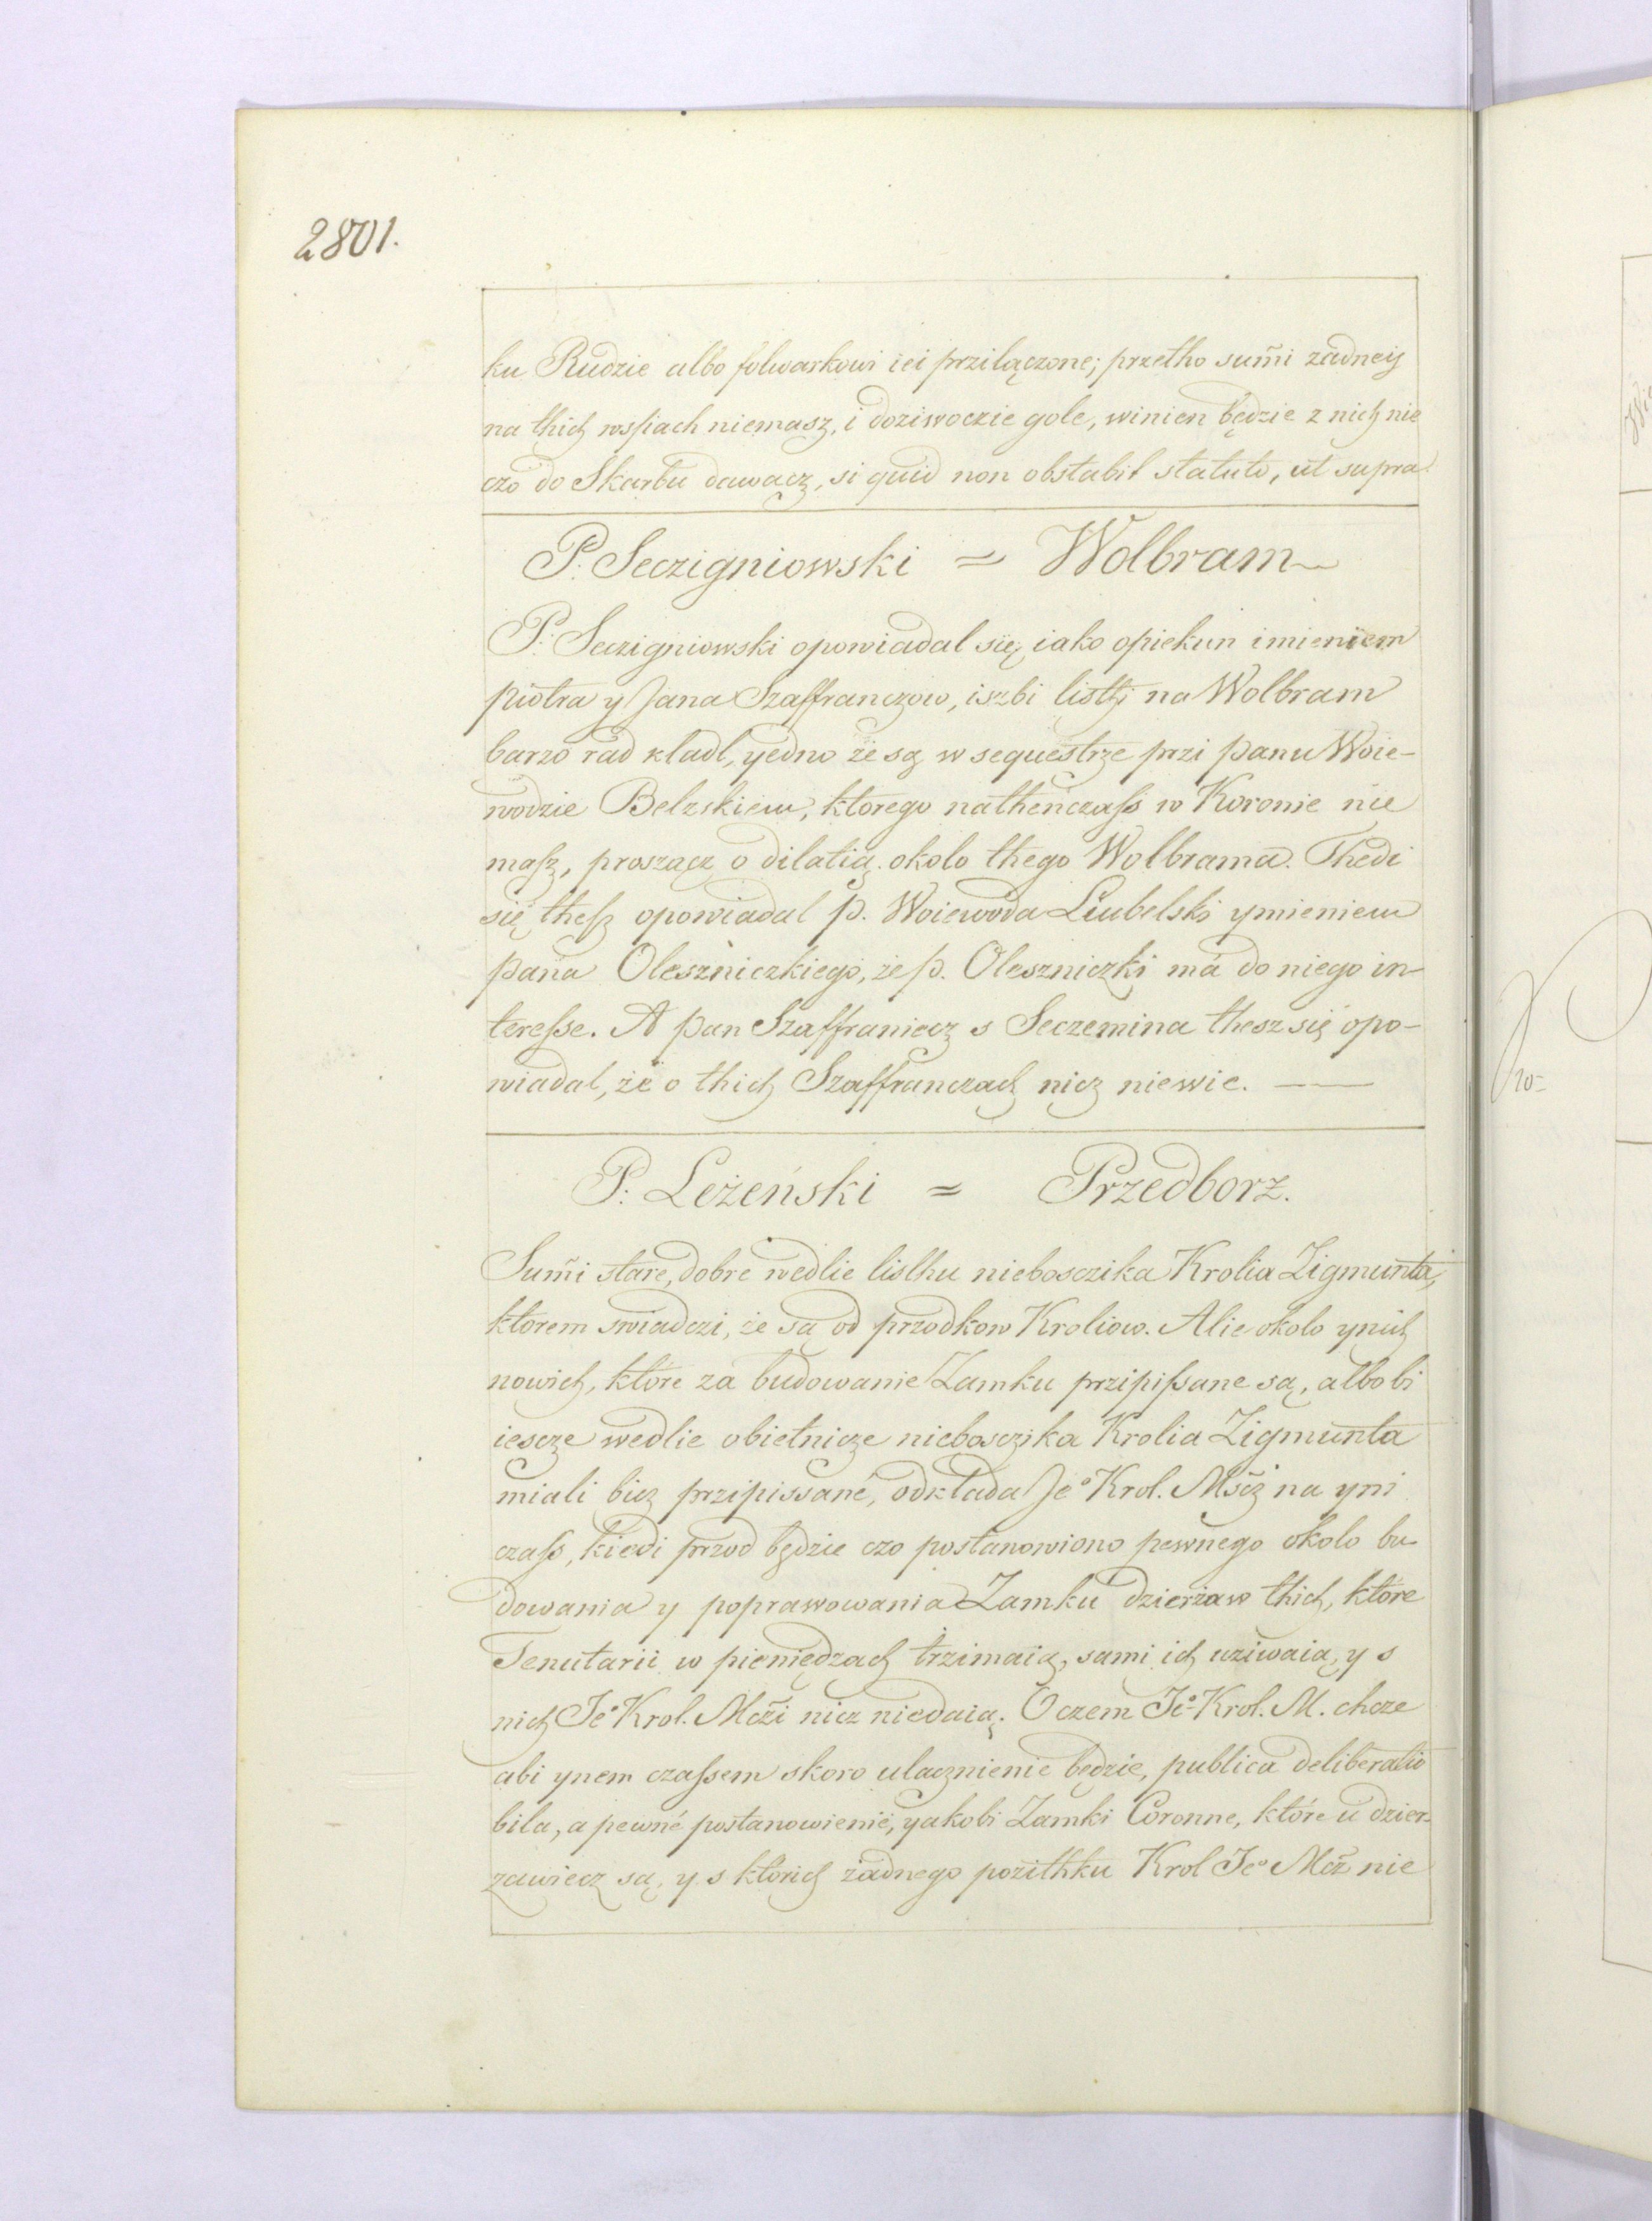 2801.
ku Rudzie albo folwarkowi iei przilączone; przetho sum̃i zadneij
na thich wsſiach niemasz, i doziwoczie gole, winien będzie z nich nie
czo do Skarbu dawacz, si quid non obstabit statuto, ut supra
P. Seczigniowski = Wolbram
P. Seczigniowski opowiadal się, iako opiekun imieniem
piotra y Jana Szaffranczow, iszbi listhj na Wolbram
barzo rad kladl, yedno że są w sequestrze przi panu Woie-
wodzie Belzskiem, ktorego nathenczaſs w Koronie nie
maſz, proszącz o dilatią okolo thego Wolbrama. Thedi
się theſz opowiadal p. Woiewoda Liubelski ymieniem
pana Oleszniczkiego, że p. Oleszniczki má do niego in-
tereſse. A pan Szaffraniecz s Seczemina thesz się opo-
wiadal, że o thich Szaffranczach nicz niewie. —
P. Leżeński = Przedborz.
Sum̃i stare, dobre wedlie listhu nieboszczika Krolia Zigmunta,
ktorem swiadczi, że są od przodkow Kroliow. Alie okolo ynich
nowich, które za budowanie Zamku przipiſsane są, albo bi
iescze wedlie obietnicze niebosczika Krolia Zigmunta
miali bicz przipissané, odkłada Je° Krol. Mścź na yni
czaſs, kiedi przod będzie czo postanowiono pewnego okolo bu-
dowania y poprawowania Zamku dzierżaw thich, które
Tenutarii w pieniędzach trzimaią, sami ich uziwaią, y s
nich Je° Krol. Mczi nicz niedaią. O czem Je° Krol. M. chcze
abi ynem czaſsem skoro ulacznienie będzie, publica deliberatio
bila, a pewné postanowienié, yakobi Zamki Coronne, które u dzier-
zawiecz są, y s ktorich żadnego pożithku Krol Je° Mcź nie